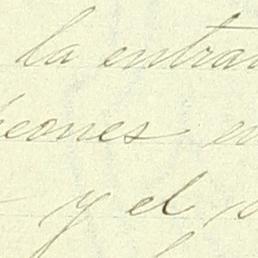 la entra
eones e
y el